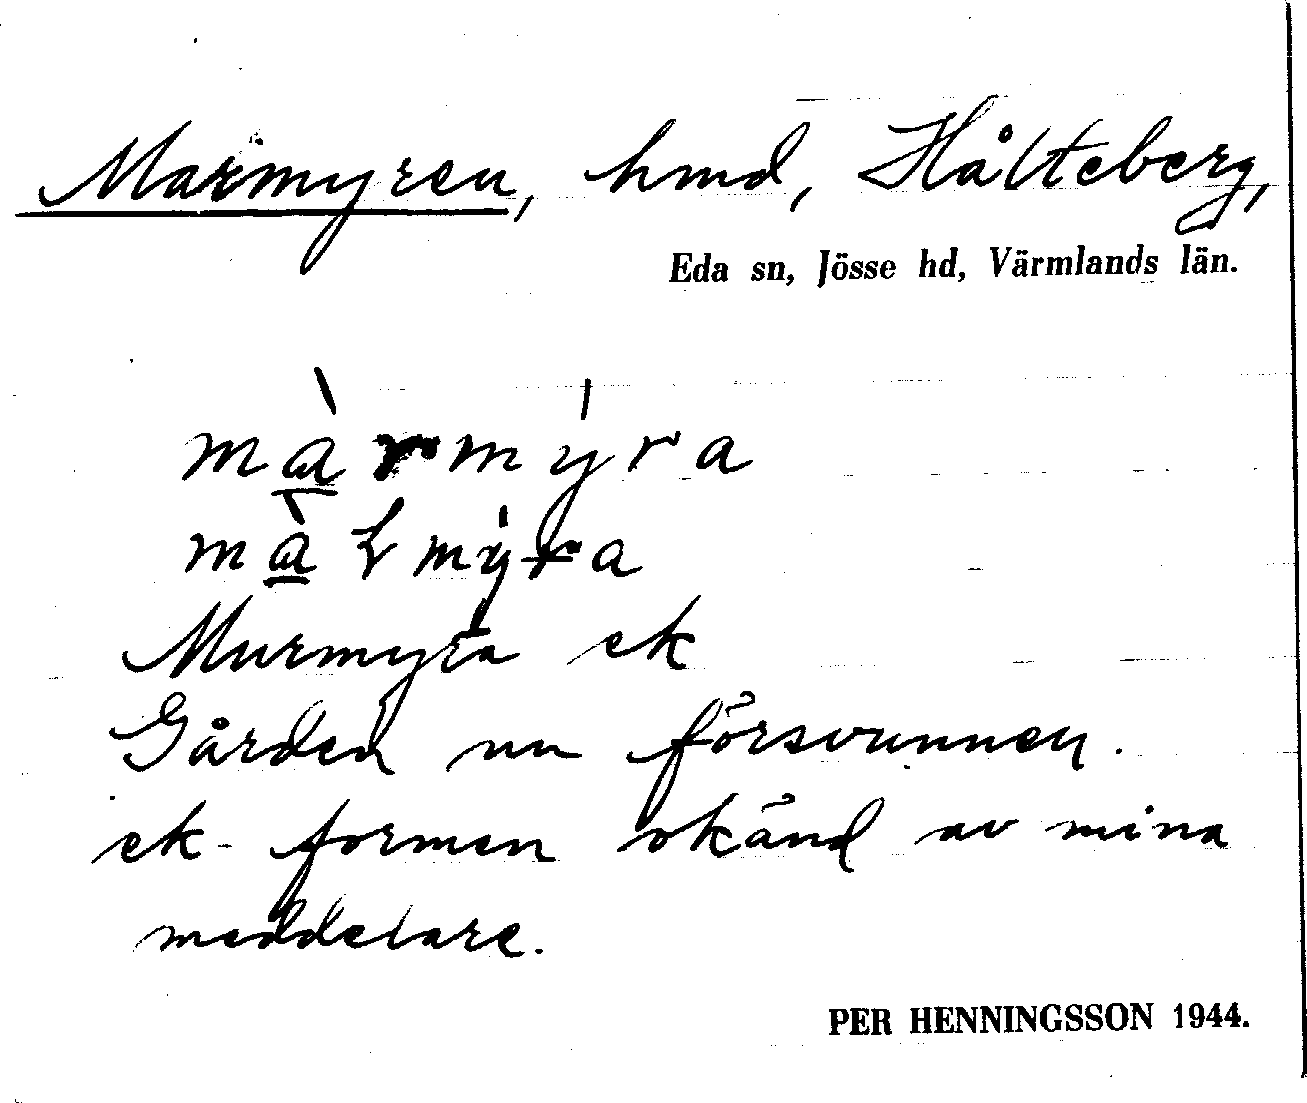 Marmyren, hmd, Hålteberg,
Eda sn, Jösse hd, Värmlands län.
màrmýra
màɫmýra
Murmyra ek
Gården nu försvunnen.
ek-formen okänd av mina
meddelare.
PER HENNINGSSON 1944.